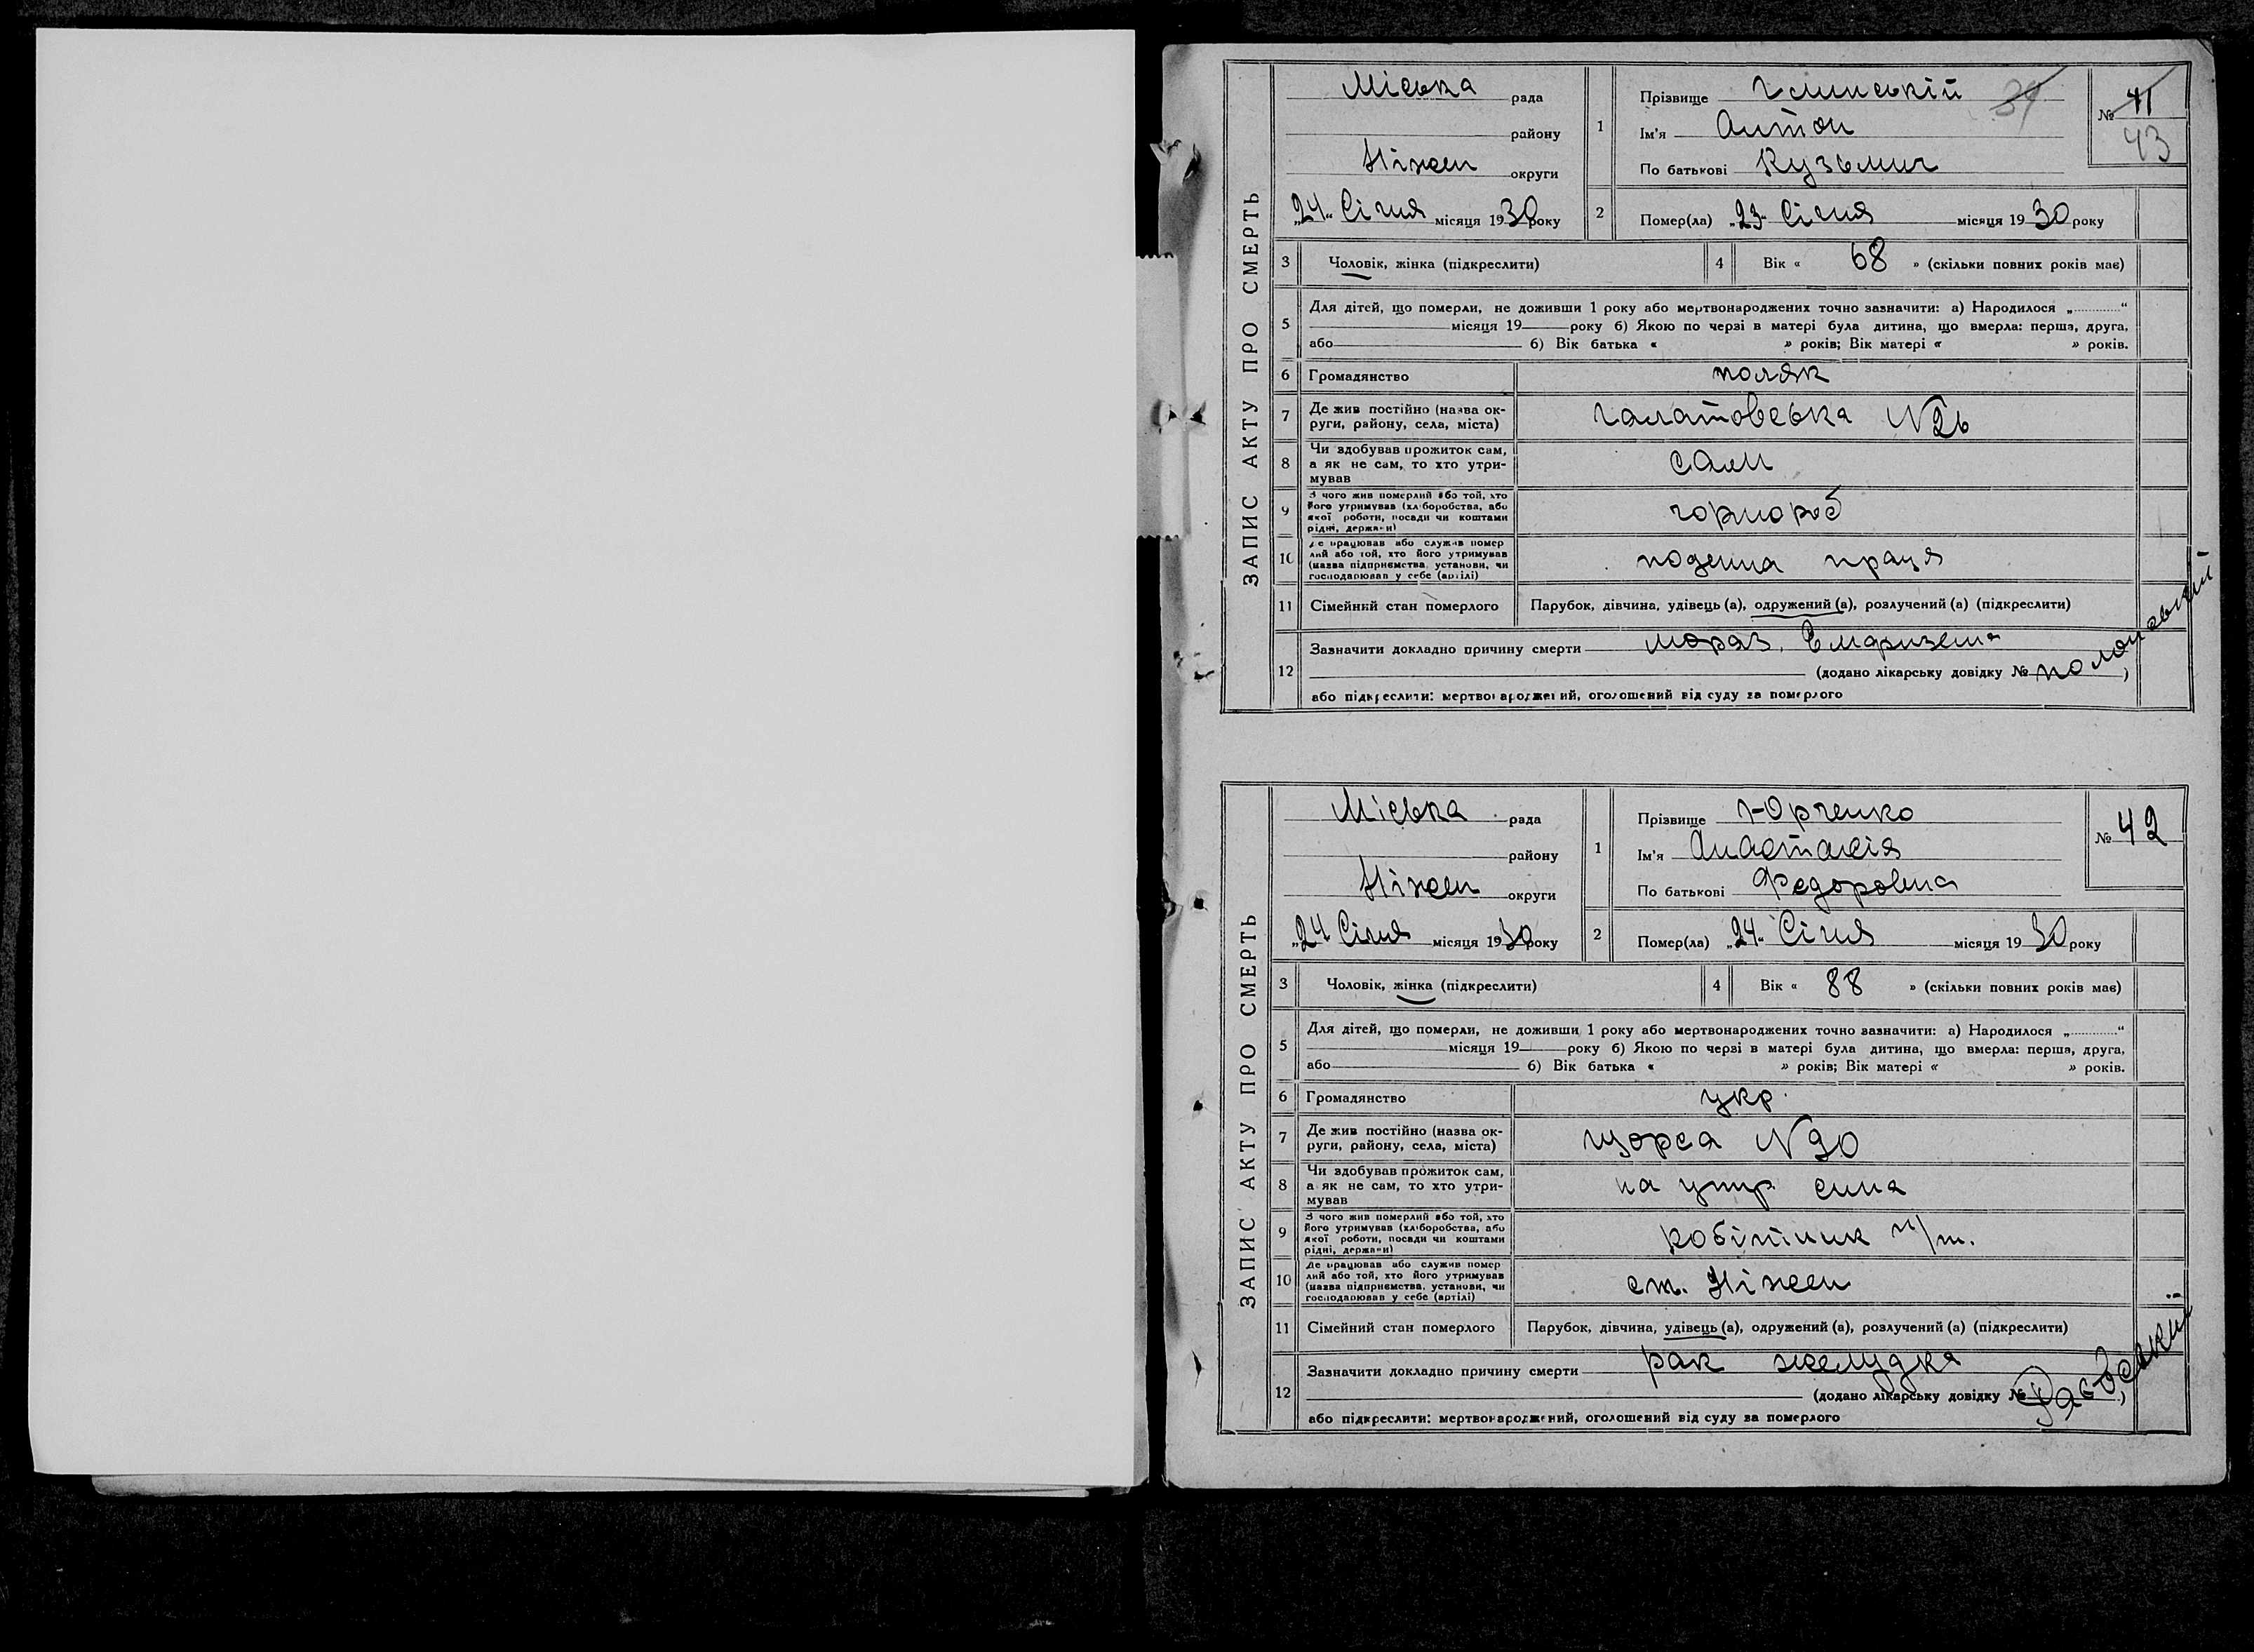 ЗАПИС АКТУ ПРО СМЕРТЬ
Міська рада
району
Ніжен округи
„24“ Січня місяця 1930 року
1 Прізвище Глинській 39
Ім'я Антон
По батькові Кузьмич
№ 41
43
2 Помер(ла) „23“ Січня місяця 1930 року
3 Чоловік, жінка (підкреслити) 4 Вік « 68 » (скільки повних років має)
5 Для дітей, що померли, не доживши 1 року або мертвонароджених точно зазначити: а) Народилося „ “
місяця 19 року б) Якою по черзі в матері була дитина, що вмерла: перша, друга,
або б) Вік батька « » років; Вік матері « » років.
6 Громадянство поляк
7 Де жив постійно (назва ок-
руги, району, села, міста) Галатовська №26
8 Чи здобував прожиток сам,
а як не сам, то хто утри-
мував сам
9 З чого жив померлий або той, хто
його утримував (хліборобства, або
якої роботи, посади чи коштами
рідні, держави) чорнороб
10 Де працював або служив помер
лий або той, хто його утримував
(назва підприємства, установи, чи
господарював у себе (артілі) поденна праця
11 Сімейний стан померлого Парубок, дівчина, удівець (а), одружений (а), розлучений (а) (підкреслити)
12 Зазначити докладно причину смерти
(додано лікарську довідку № )
або підкреслити: мертвонароджений, оголошений від суду за померлого
ЗАПИС АКТУ ПРО СМЕРТЬ
Міська рада
району
Ніжен округи
„24 Січня місяця 1930 року
1 Прізвище Юрченко
Ім'я Анастасія
По батькові Федоровна
№ 42
2 Помер(ла) „24“ Січня місяця 1930 року
3 Чоловік, жінка (підкреслити) 4 Вік « 88 » (скільки повних років має)
5 Для дітей, що померли, не доживши 1 року або мертвонароджених точно зазначити: а) Народилося „ “
місяця 19 року б) Якою по черзі в матері була дитина, що вмерла: перша, друга,
або б) Вік батька « » років; Вік матері « » років.
6 Громадянство укр.
7 Де жив постійно (назва ок-
руги, району, села, міста) Щорса №90
8 Чи здобував прожиток сам,
а як не сам, то хто утри-
мував на утр сина
9 З чого жив померлий або той, хто
його утримував (хліборобства, або
якої роботи, посади чи коштами
рідні, держави) робітник
10 Де працював або служив помер
лий або той, хто його утримував
(назва підприємства, установи, чи
господарював у себе (артілі) ст. Ніжен
11 Сімейний стан померлого Парубок, дівчина, удівець (а), одружений (а), розлучений (а) (підкреслити)
12 Зазначити докладно причину смерти рак желудка
(додано лікарську довідку № )
або підкреслити: мертвонароджений, оголошений від суду за померлого